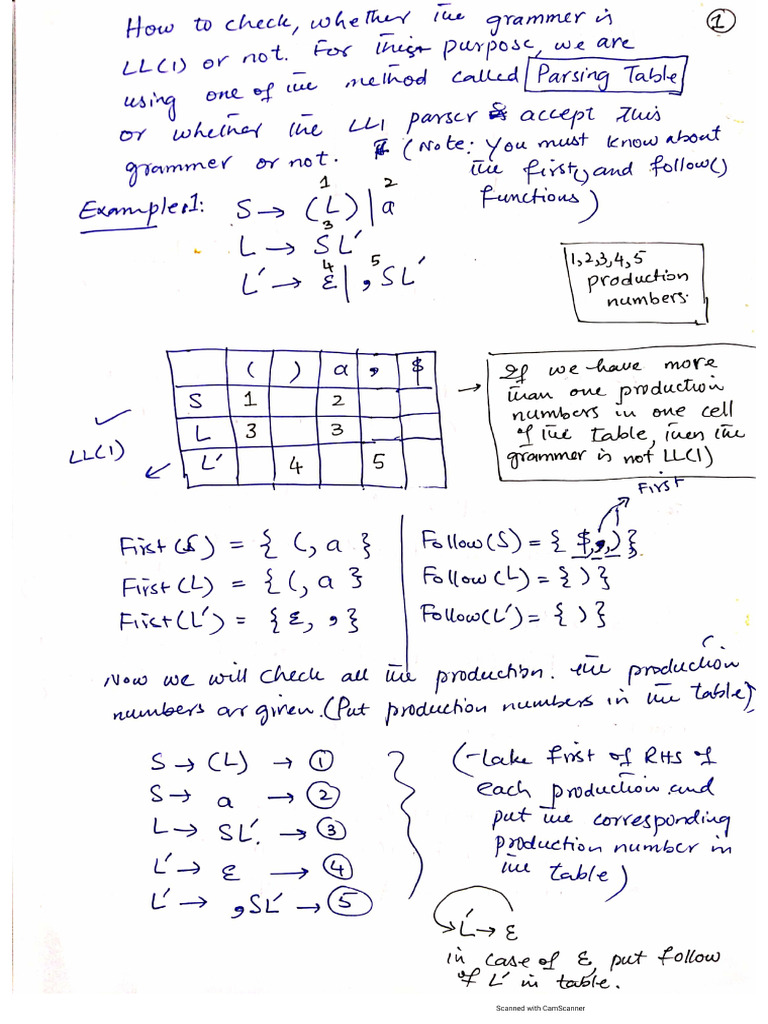 How to check, whether the grammer is
①
LL(1) or not. For this purpose, we are
using one of the method called Parsing Table
or whether the LL1 parser accept this
grammer or not. (Note: You must know about
the first() and follow()
functions)
1 2
Example:1: S → (L) | a
3
L → SL'
4 5
L' → ε | , SL'
1,2,3,4,5
production
numbers.
( ) a , $
S 1 2
L 3 3
L' 4 5
LL(1)
→ If we have more
than one production
numbers in one cell
of the table, then the
grammer is not LL(1)
First
First(S) = { (, a }
First(L) = { (, a }
First(L') = { ε, , }
Follow(S) = { $, , ) }
Follow(L) = { ) }
Follow(L') = { ) }
Now we will check all the production. the production
numbers ar given. (Put production numbers in the table)
S → (L) → ①
S → a → ②
L → SL'. → ③
L' → ε → ④
L' → , SL' → ⑤
(take first of RHS of
each production and
put the corresponding
production number in
the table)
L' → ε
in case of ε, put follow
of L' in table.
Scanned with CamScanner